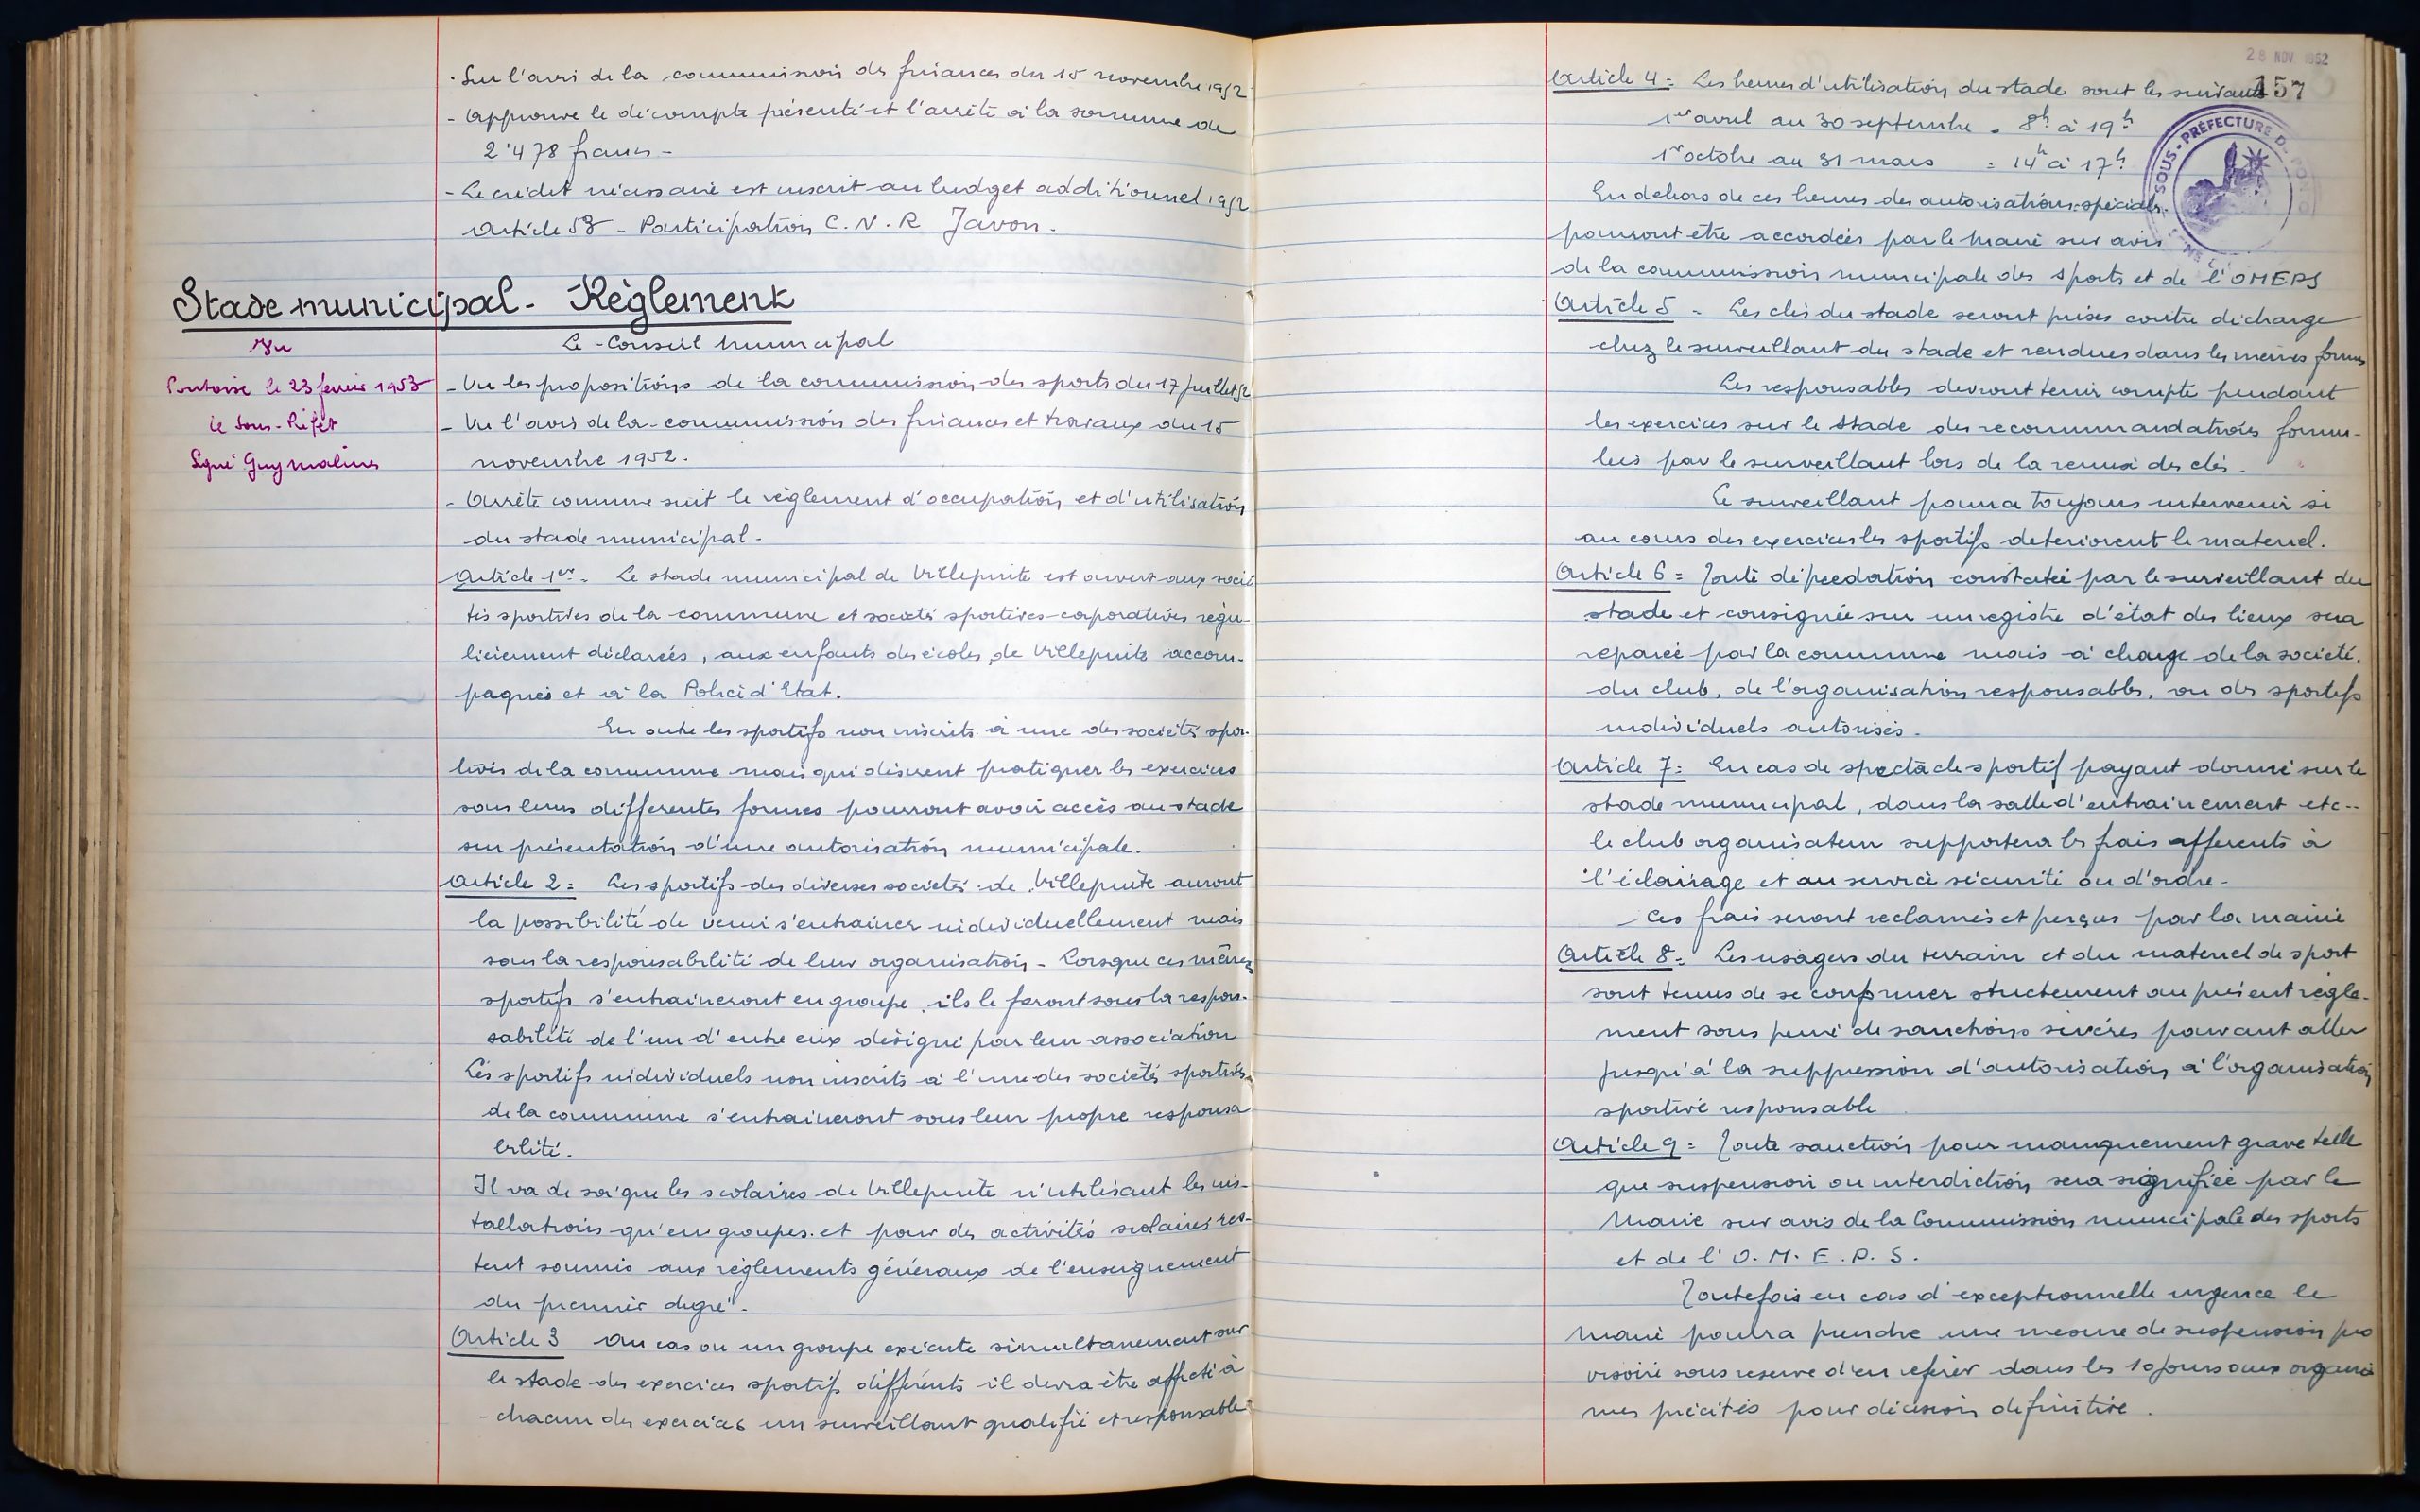 - Sur l'avis de la commission des finances du 15 novembre 1952
- approuve le décompte présenté et l'arrête à la somme de
2'478 francs -
- Le crédit nécessaire est inscrit au budget additionnel 1952
article 53 - Participation C.N.R Javon.
Stade municipal - Règlement
Vu
Pontoise le 23 fevrier 1953
le Sous-Préfet
Signé Guy malines
Le Conseil municipal
- Vu les propositions de la commission des sports du 17 juillet 52
- Vu l'avis de la commission des finances et travaux du 15
novembre 1952.
- Arrête comme suit le règlement d'occupation et d'utilisation
du stade municipal -
Article 1er - Le stade municipal de Villepinte est ouvert aux socié
tés sportives de la commune et sociétés sportives corporatives régu-
lièrement déclarées, aux enfants des écoles de Villepinte accom-
pagnés et à la Police d'Etat.
En outre les sportifs non inscrits à une des sociétés spor-
tives de la commune mais qui désirent pratiquer les exercices
sous leurs differentes formes pourront avoir accès au stade
sur présentation d'une autorisation municipale.
Article 2 = Les sportifs des diverses societés de Villepinte auront
la possibilité de venir s'entrainer individuellement mais
sous la responsabilité de leur organisation - Lorsque ces mêmes
sportifs s'entraineront en groupe, ils le feront sous la respon-
sabilité de l'un d'entre eux désigné par leur association
Les sportifs individuels non inscrits à l'une des sociétés sportives
de la commune s'entraineront sous leur propre responsa
bilité.
Il va de soi que les scolaires de Villepinte n'utilisant les ins-
tallations qu'en groupes et pour des activités scolaires res-
tent soumis aux règlements généraux de l'enseignement
du premier degré.
Article 3 Au cas ou un groupe exécute simultanement sur
le stade des exercices sportifs différents il devra être affecté à
chacun des exercices un surveillant qualifié et responsable
28 NOV 1952
157
SOUS-PRÉFECTURE DE PONTOISE
Article 4 = Les heures d'utilisation du stade sont les suivantes
1er avril au 30 septembre - 8h à 19h
1er octobre au 31 mars = 14h à 17h
En dehors de ces heures des autorisations spéciales
pourront être accordées par le Maire sur avis
de la commission municipale des sports et de l'OMEPS
Article 5 - Les clés du stade seront prises contre décharge
chez le surveillant du stade et rendues dans les mêmes formes
Les responsables devront tenir compte pendant
les exercices sur le stade des recommandations formu-
lées par le surveillant lors de la remise des clés.
Le surveillant pourra toujours intervenir si
au cours des exercices les sportifs deteriorent le materiel.
Article 6 = Toute dépredation constatée par le surveillant du
stade et consignée sur un registre d'état des lieux sera
reparée par la commune mais à charge de la societé,
du club, de l'organisation responsables, ou des sportifs
individuels autorisés.
Article 7 = En cas de spectacle sportif payant donné sur le
stade municipal, dans la salle d'entrainement etc..
le club organisateur supportera les frais afferents à
l'éclairage et au service sécurité ou d'ordre -
Ces frais seront reclamés et perçus par la mairie
Article 8 = Les usagers du terrain et du materiel de sport
sont tenus de se conformer strictement au présent règle-
ment sous peine de sanctions sévéres pouvant aller
jusqu'à la suppression d'autorisation à l'organisation
sportive responsable
Article 9 = Toute sanction pour manquement grave telle
que suspension ou interdiction sera signifiée par le
Maire sur avis de la Commission municipale des sports
et de l'O.M.E.P.S.
Toutefois en cas d'exceptionnelle urgence le
Maire pourra prendre une mesure de suspension pro
visoire sous reserve d'en referer dans les 10 jours aux organis
mes précités pour décision definitive.